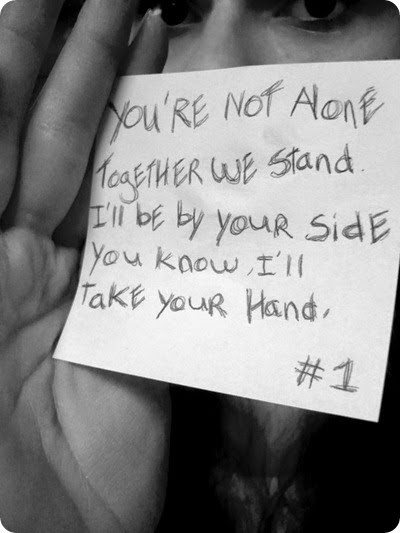 YOU'RE NOT AlonE
TogETHER WE Stand.
I'll bE by youR SidE
you know, I'll
TaKE youR Hand.
#1